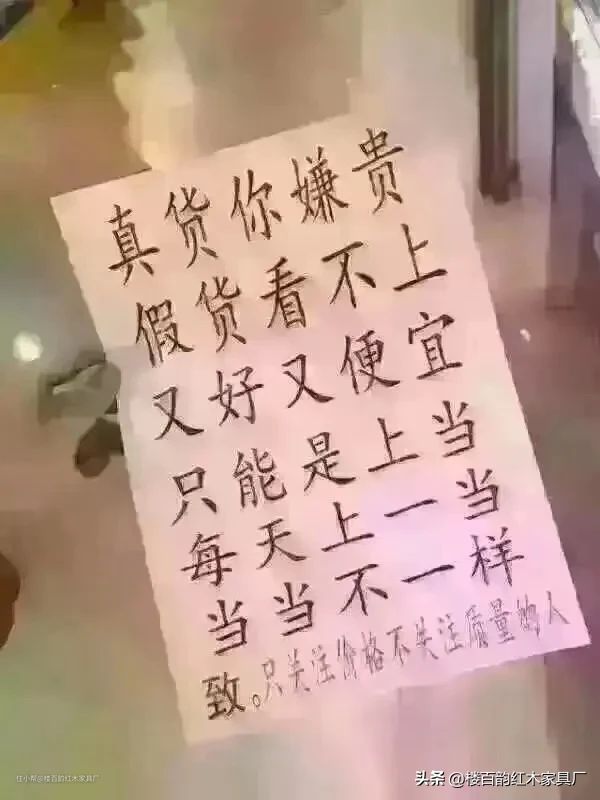 真货你嫌贵
假货看不上
又好又便宜
只能是上当
每天上一当
当当不一样
致。只关注价格不关注质量的人
住小帮@楼百韵红木家具厂
头条@楼百韵红木家具厂